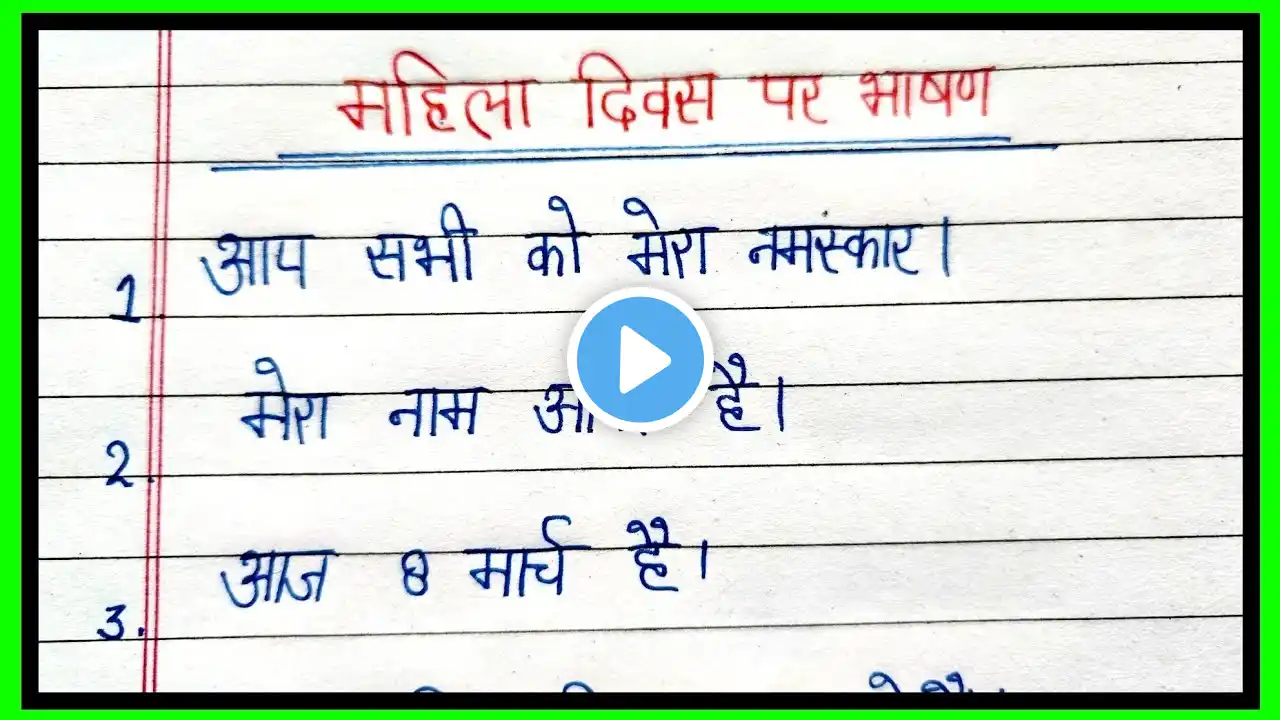 महिला दिवस पर भाषण
1. आप सभी को मेरा नमस्कार।
2. मेरा नाम है।
3. आज 8 मार्च है।